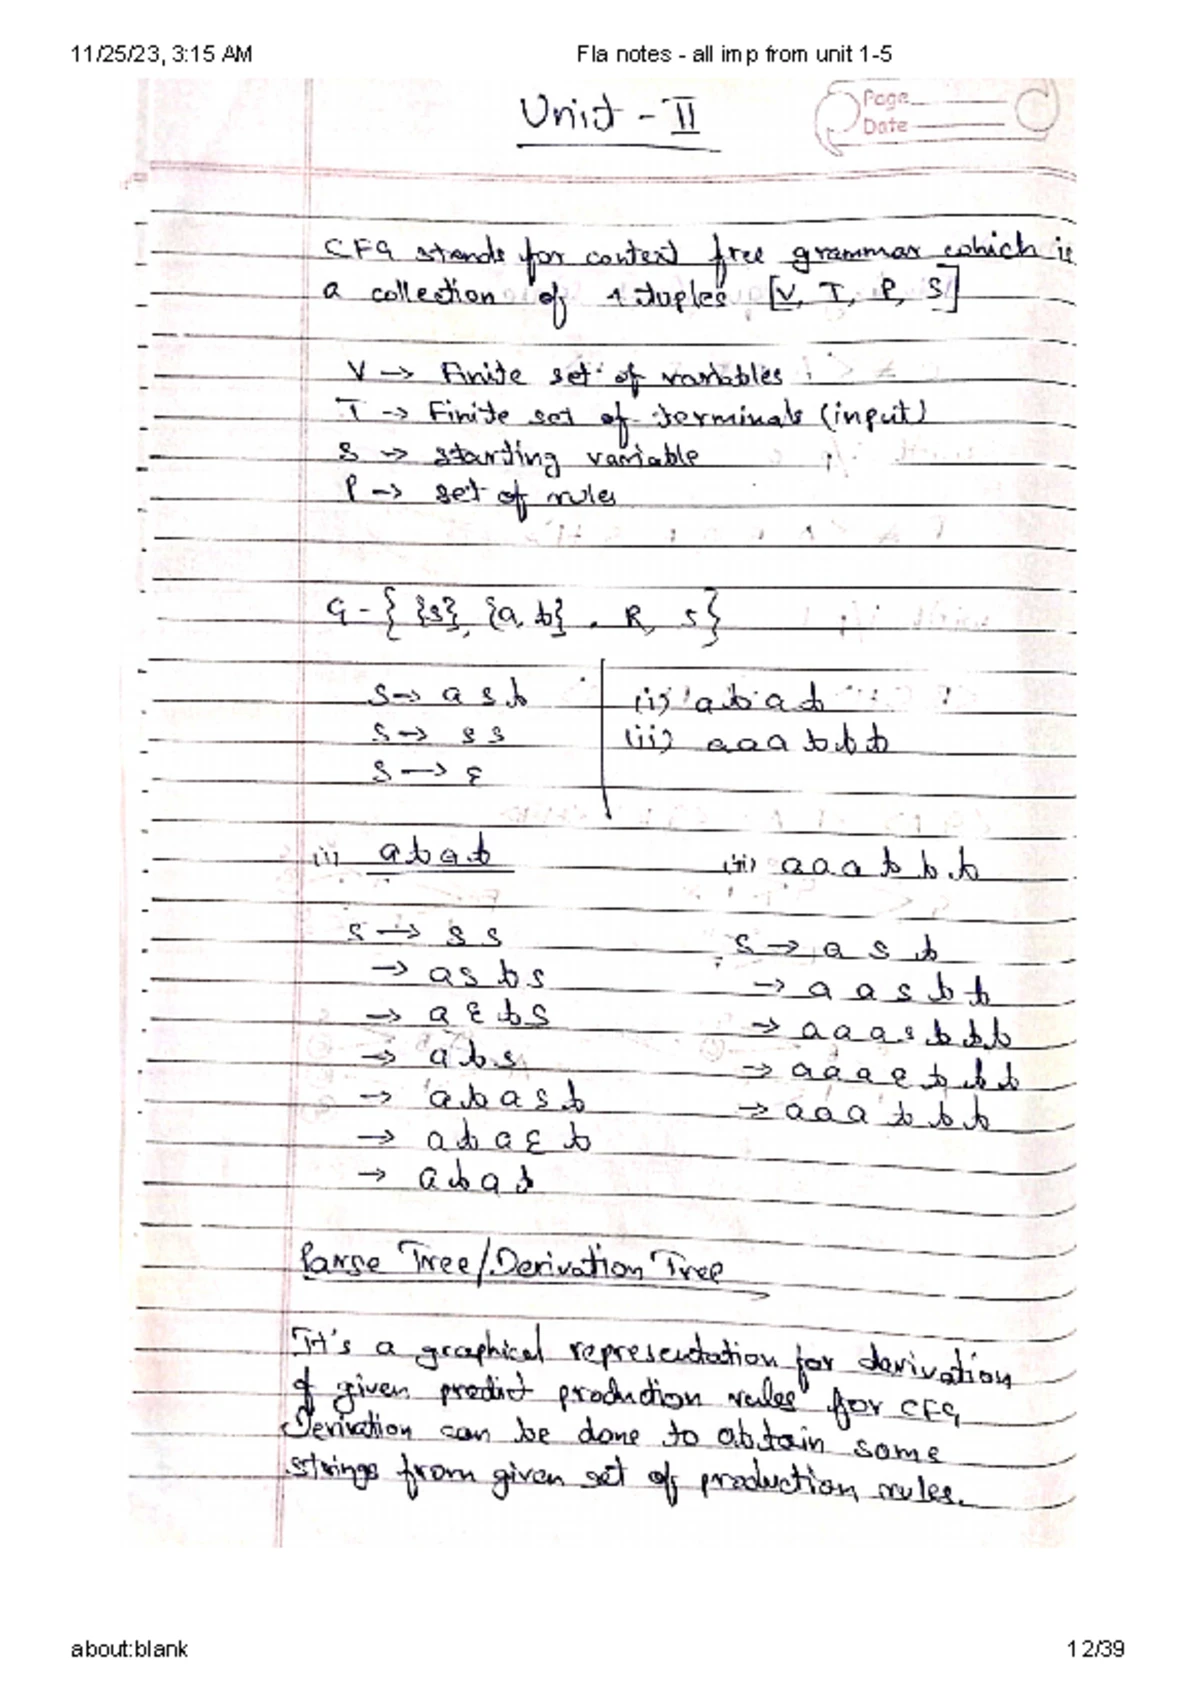 11/25/23, 3:15 AM Fla notes - all imp from unit 1-5
Unit - II
Page
Date
CFG stands for context free grammar which is
a collection of 4 tuples [V, T, P, S]
V → Finite set of variables
T → Finite set of terminals (input)
S → starting variable
P → set of rules
G - { {S}, {a, b}, R, S }
S → a S b
S → S S
S → ε
(i) a b a b
(ii) a a a b b b
(i) a b a b
S → S S
→ a S b S
→ a ε b S
→ a b S
→ a b a S b
→ a b a ε b
→ a b a b
(ii) a a a b b b
S → a S b
→ a a S b b
→ a a a S b b b
→ a a a ε b b b
→ a a a b b b
Parse Tree/Derivation Tree
It's a graphical representation for derivation
of given predict production rules for CFG
Derivation can be done to obtain some
strings from given set of production rules.
about:blank 12/39